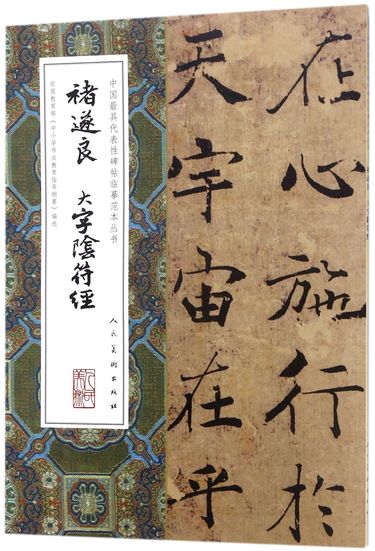 在心施行於
天宇宙在乎
中国最具代表性碑帖临摹范本丛书
褚遂良 大字陰符經
人民美術出版社
依据教育部《中小学书法教育指导纲要》编选